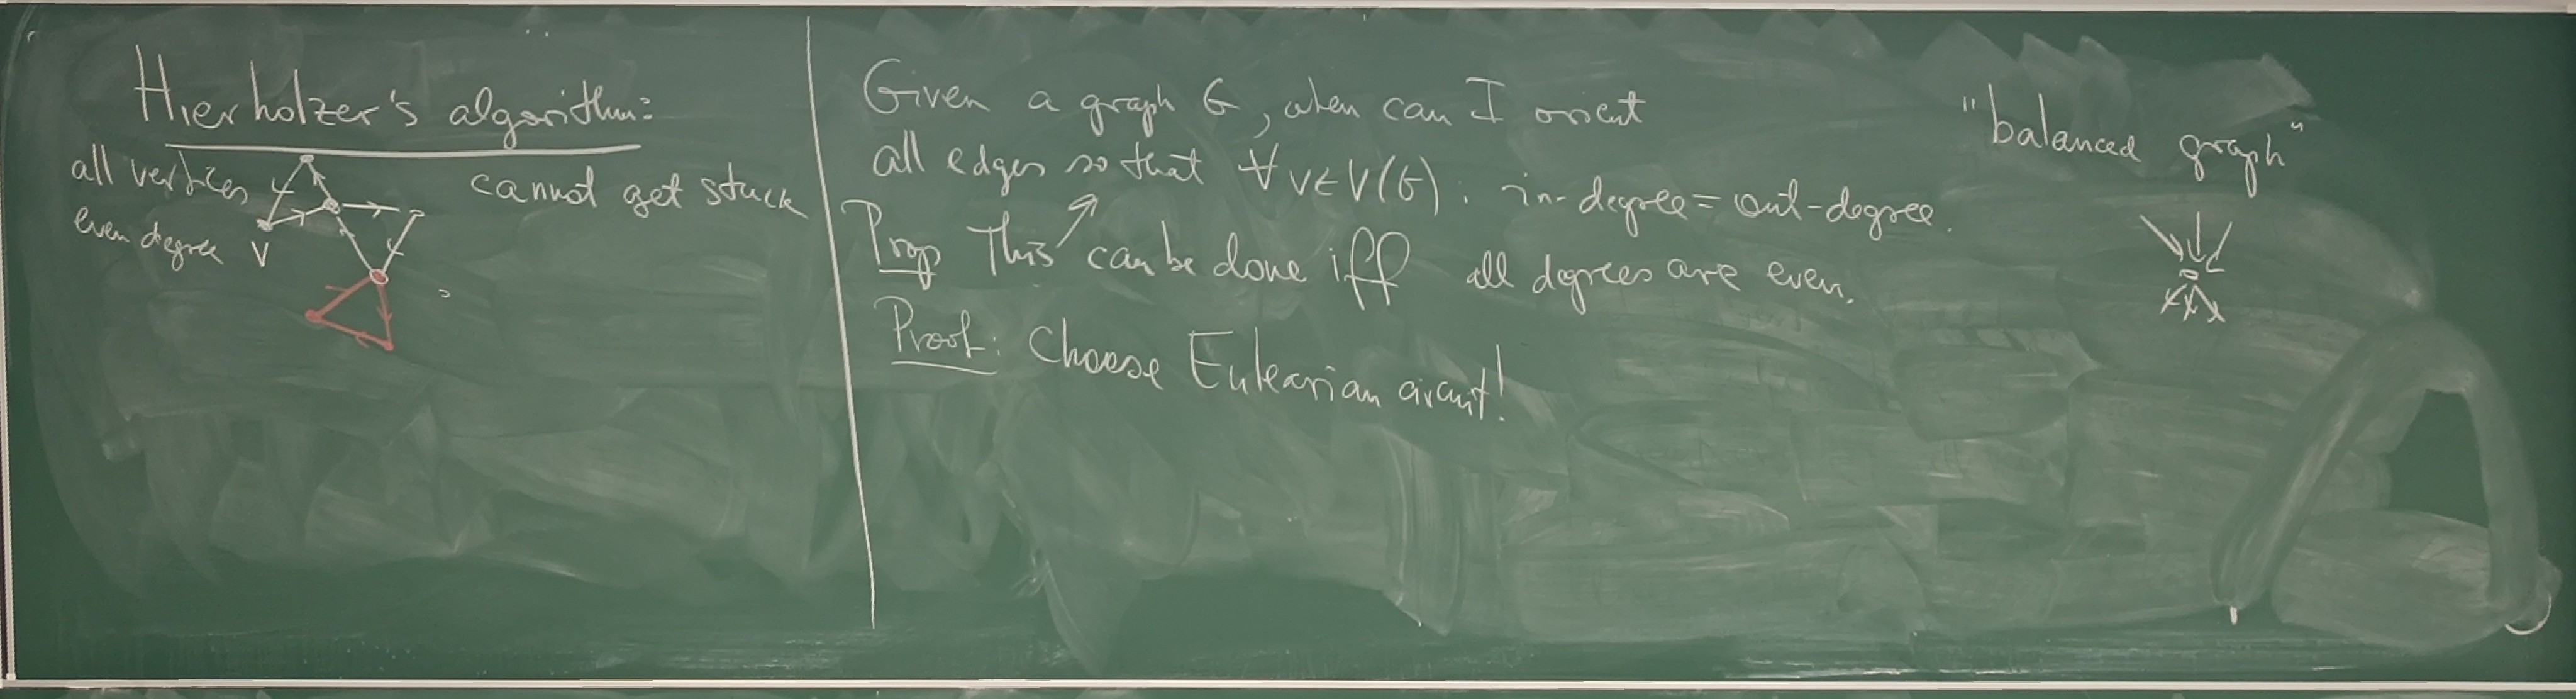 Hierholzer's algorithm:
all vertices
even degree
V
cannot get stuck
Given a graph G, when can I orient
all edges so that ∀v∈V(G): in-degree = out-degree.
Prop This can be done iff all degrees are even.
Proof: Choose Eulearian circuit!
"balanced graph"